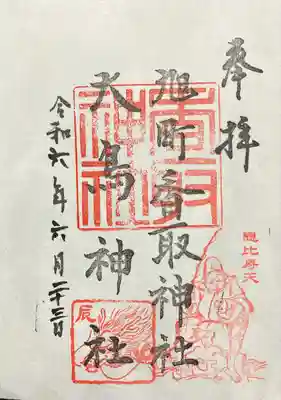 奉拝
恵比寿天
旭町香取神社
大鳥神社
令和六年六月二十三日
香取
神社
辰